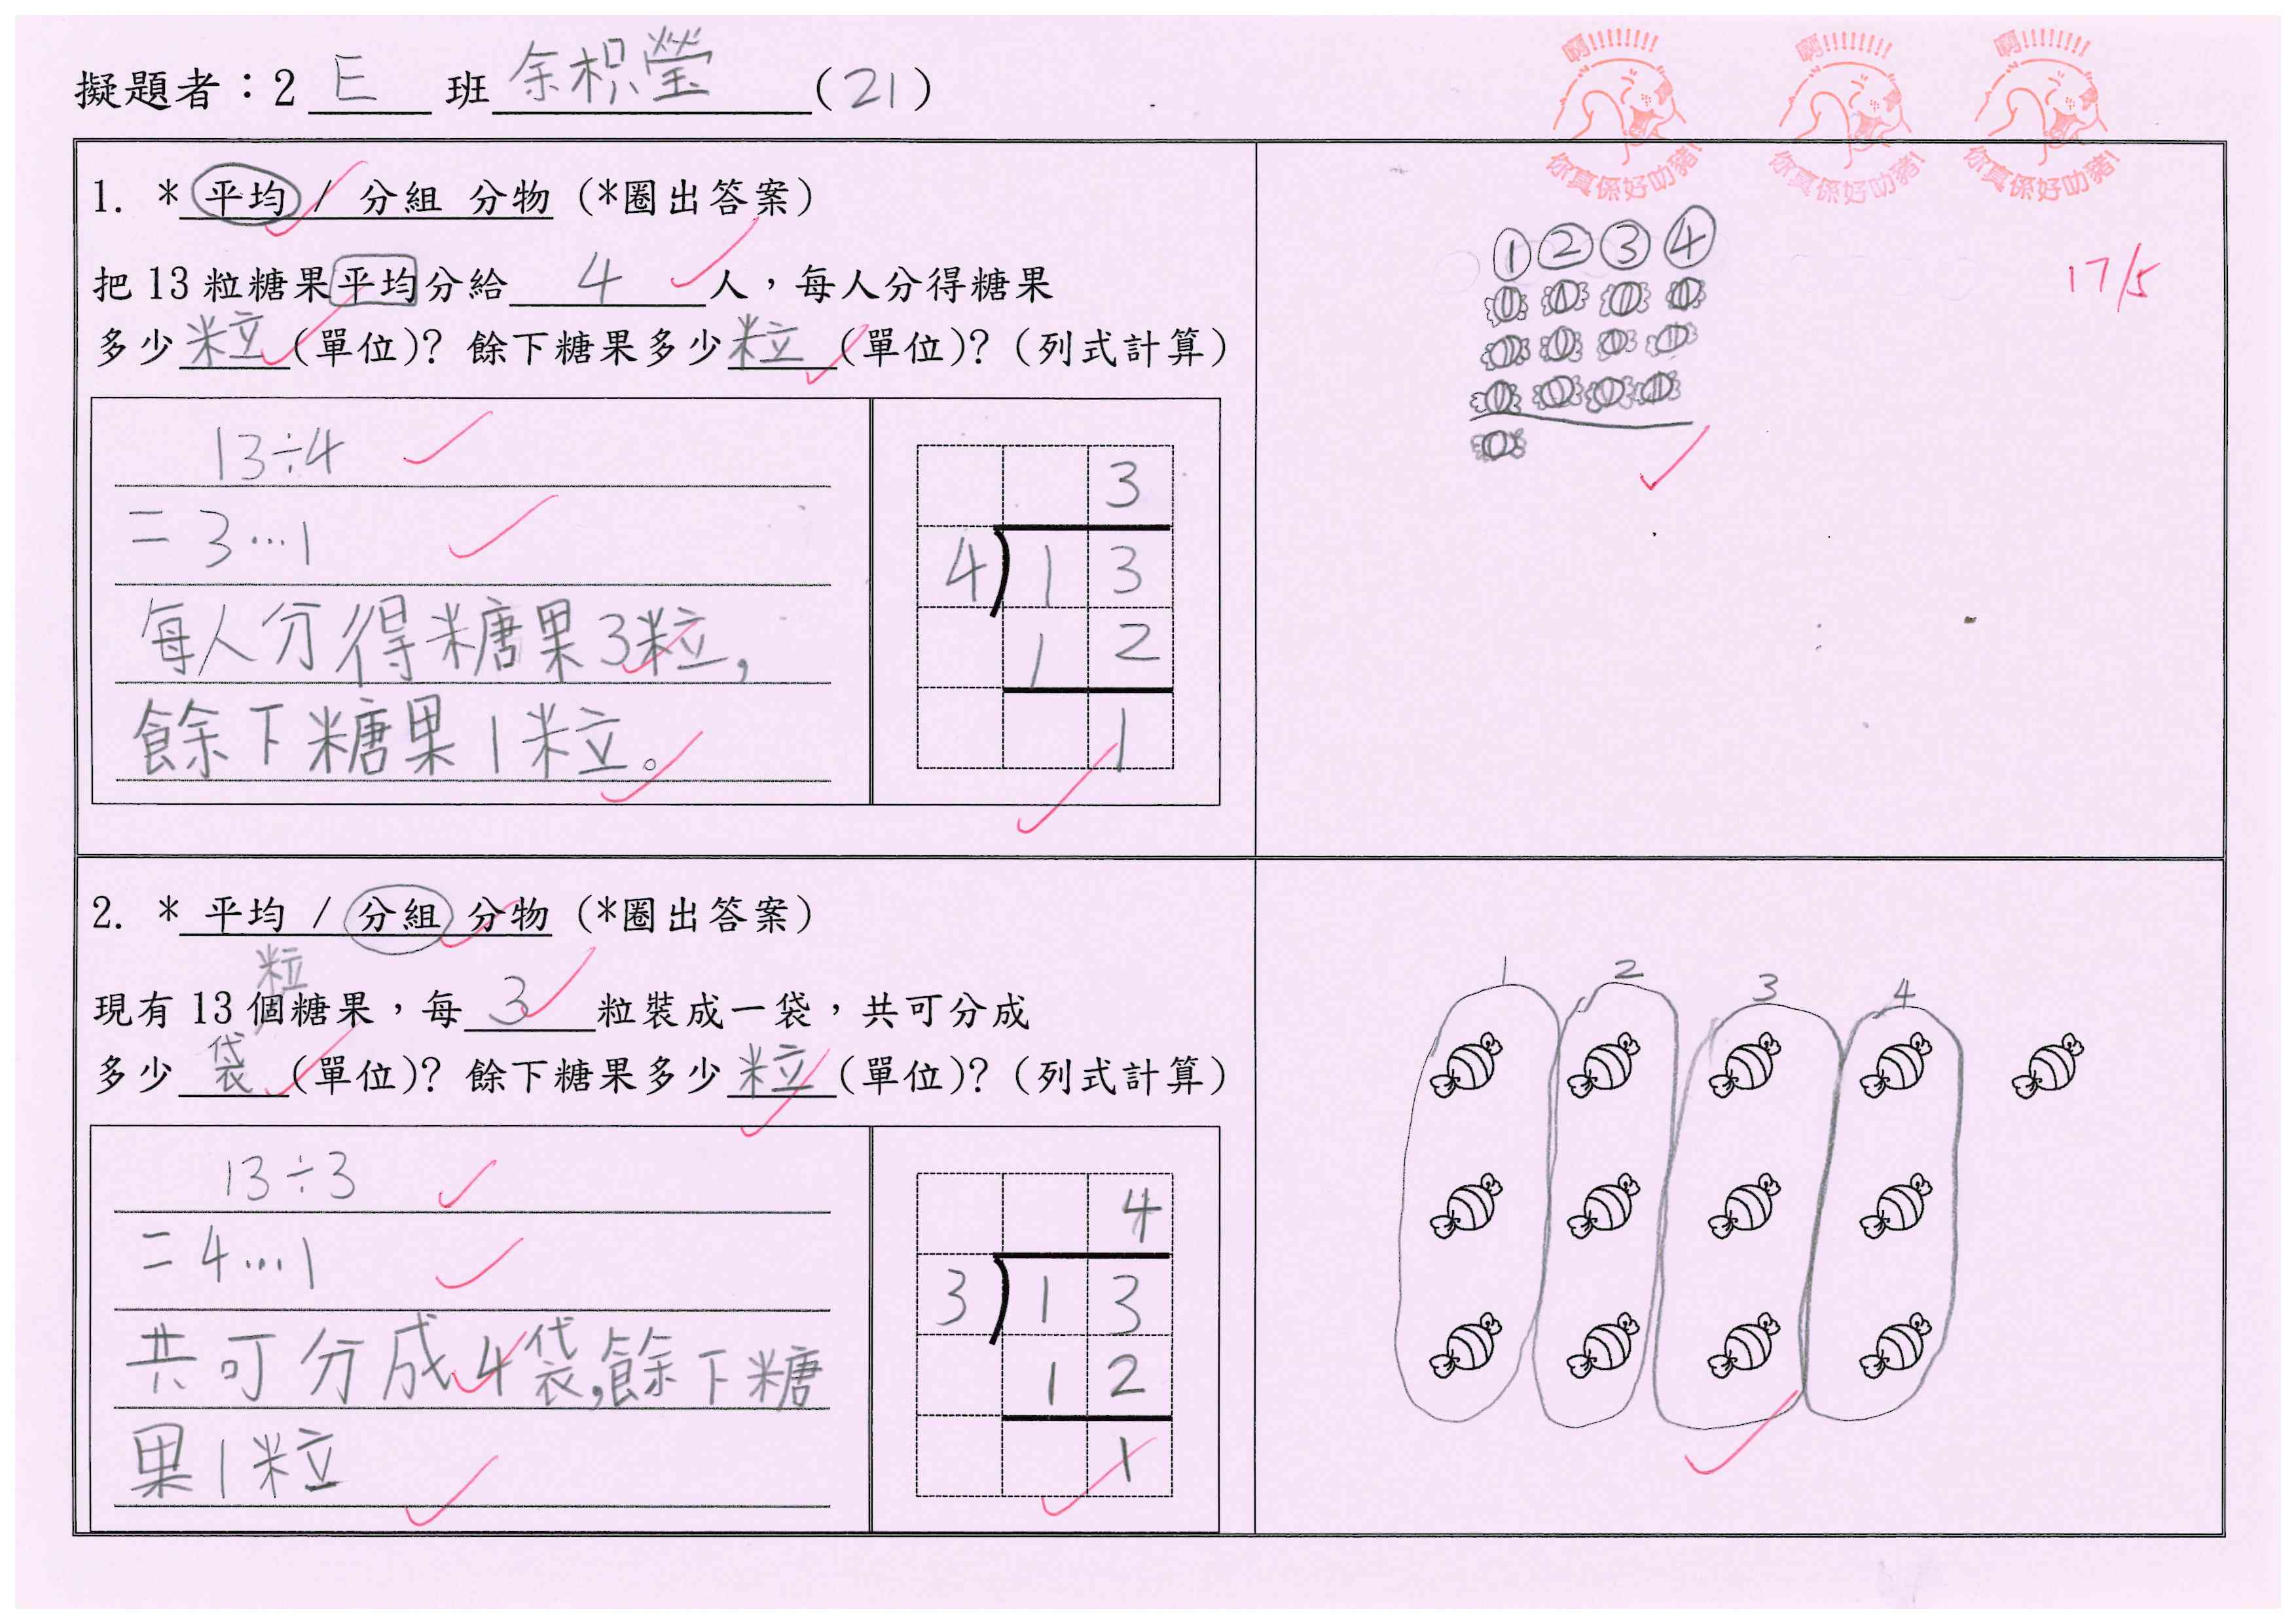 擬題者：2 E 班 余枳瑩 (21)
啊!!!!!!!! 啊!!!!!!!! 啊!!!!!!!!
你真係好叻豬! 你真係好叻豬! 你真係好叻豬!
1. * 平均 / 分組 分物 (*圈出答案)
把 13 粒糖果平均分給 4 人，每人分得糖果
多少 粒 (單位)? 餘下糖果多少 粒 (單位)? (列式計算)
13÷4
= 3…1
每人分得糖果3粒，
餘下糖果1粒。
3
4 ) 1 3
1 2
1
① ② ③ ④
17/5
2. * 平均 / 分組 分物 (*圈出答案)
粒
現有 13 個糖果，每 3 粒裝成一袋，共可分成
多少 袋 (單位)? 餘下糖果多少 粒 (單位)? (列式計算)
13÷3
= 4…1
共可分成4袋，餘下糖
果1粒
4
3 ) 1 3
1 2
1
1 2 3 4